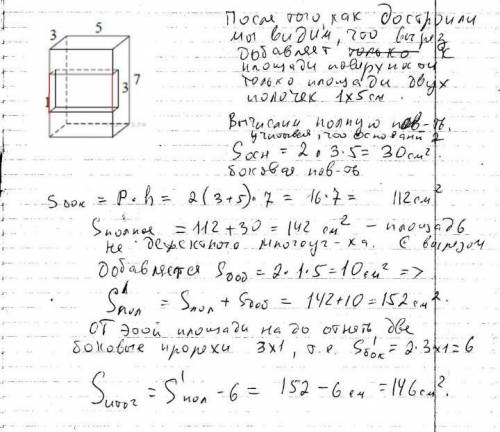 3 5
7
3
1
После того, как достроили
мы видим, что вырез
добавляет только к
площади поверхности
только площади двух
полочек 1x5см.
Вычислим полную пов-ть.
учитывая, что оснований 2
Sосн = 2·3·5 = 30см².
боковая пов-ть
Sбок = P·h = 2(3+5)·7 = 16·7 = 112см²
Sполное = 112+30 = 142 см² – площадь
не многоуг-ка. с вырезом
Добавляется Sдоб = 2·1·5 = 10см² =>
S¹пол = Sпол + Sдоб = 142+10 = 152см².
От этой площади надо отнять две
боковые прорехи 3x1, т.е. S¹бок = 2·3x1 = 6
Sитог = S¹пол - 6 = 152 - 6см = 146см².